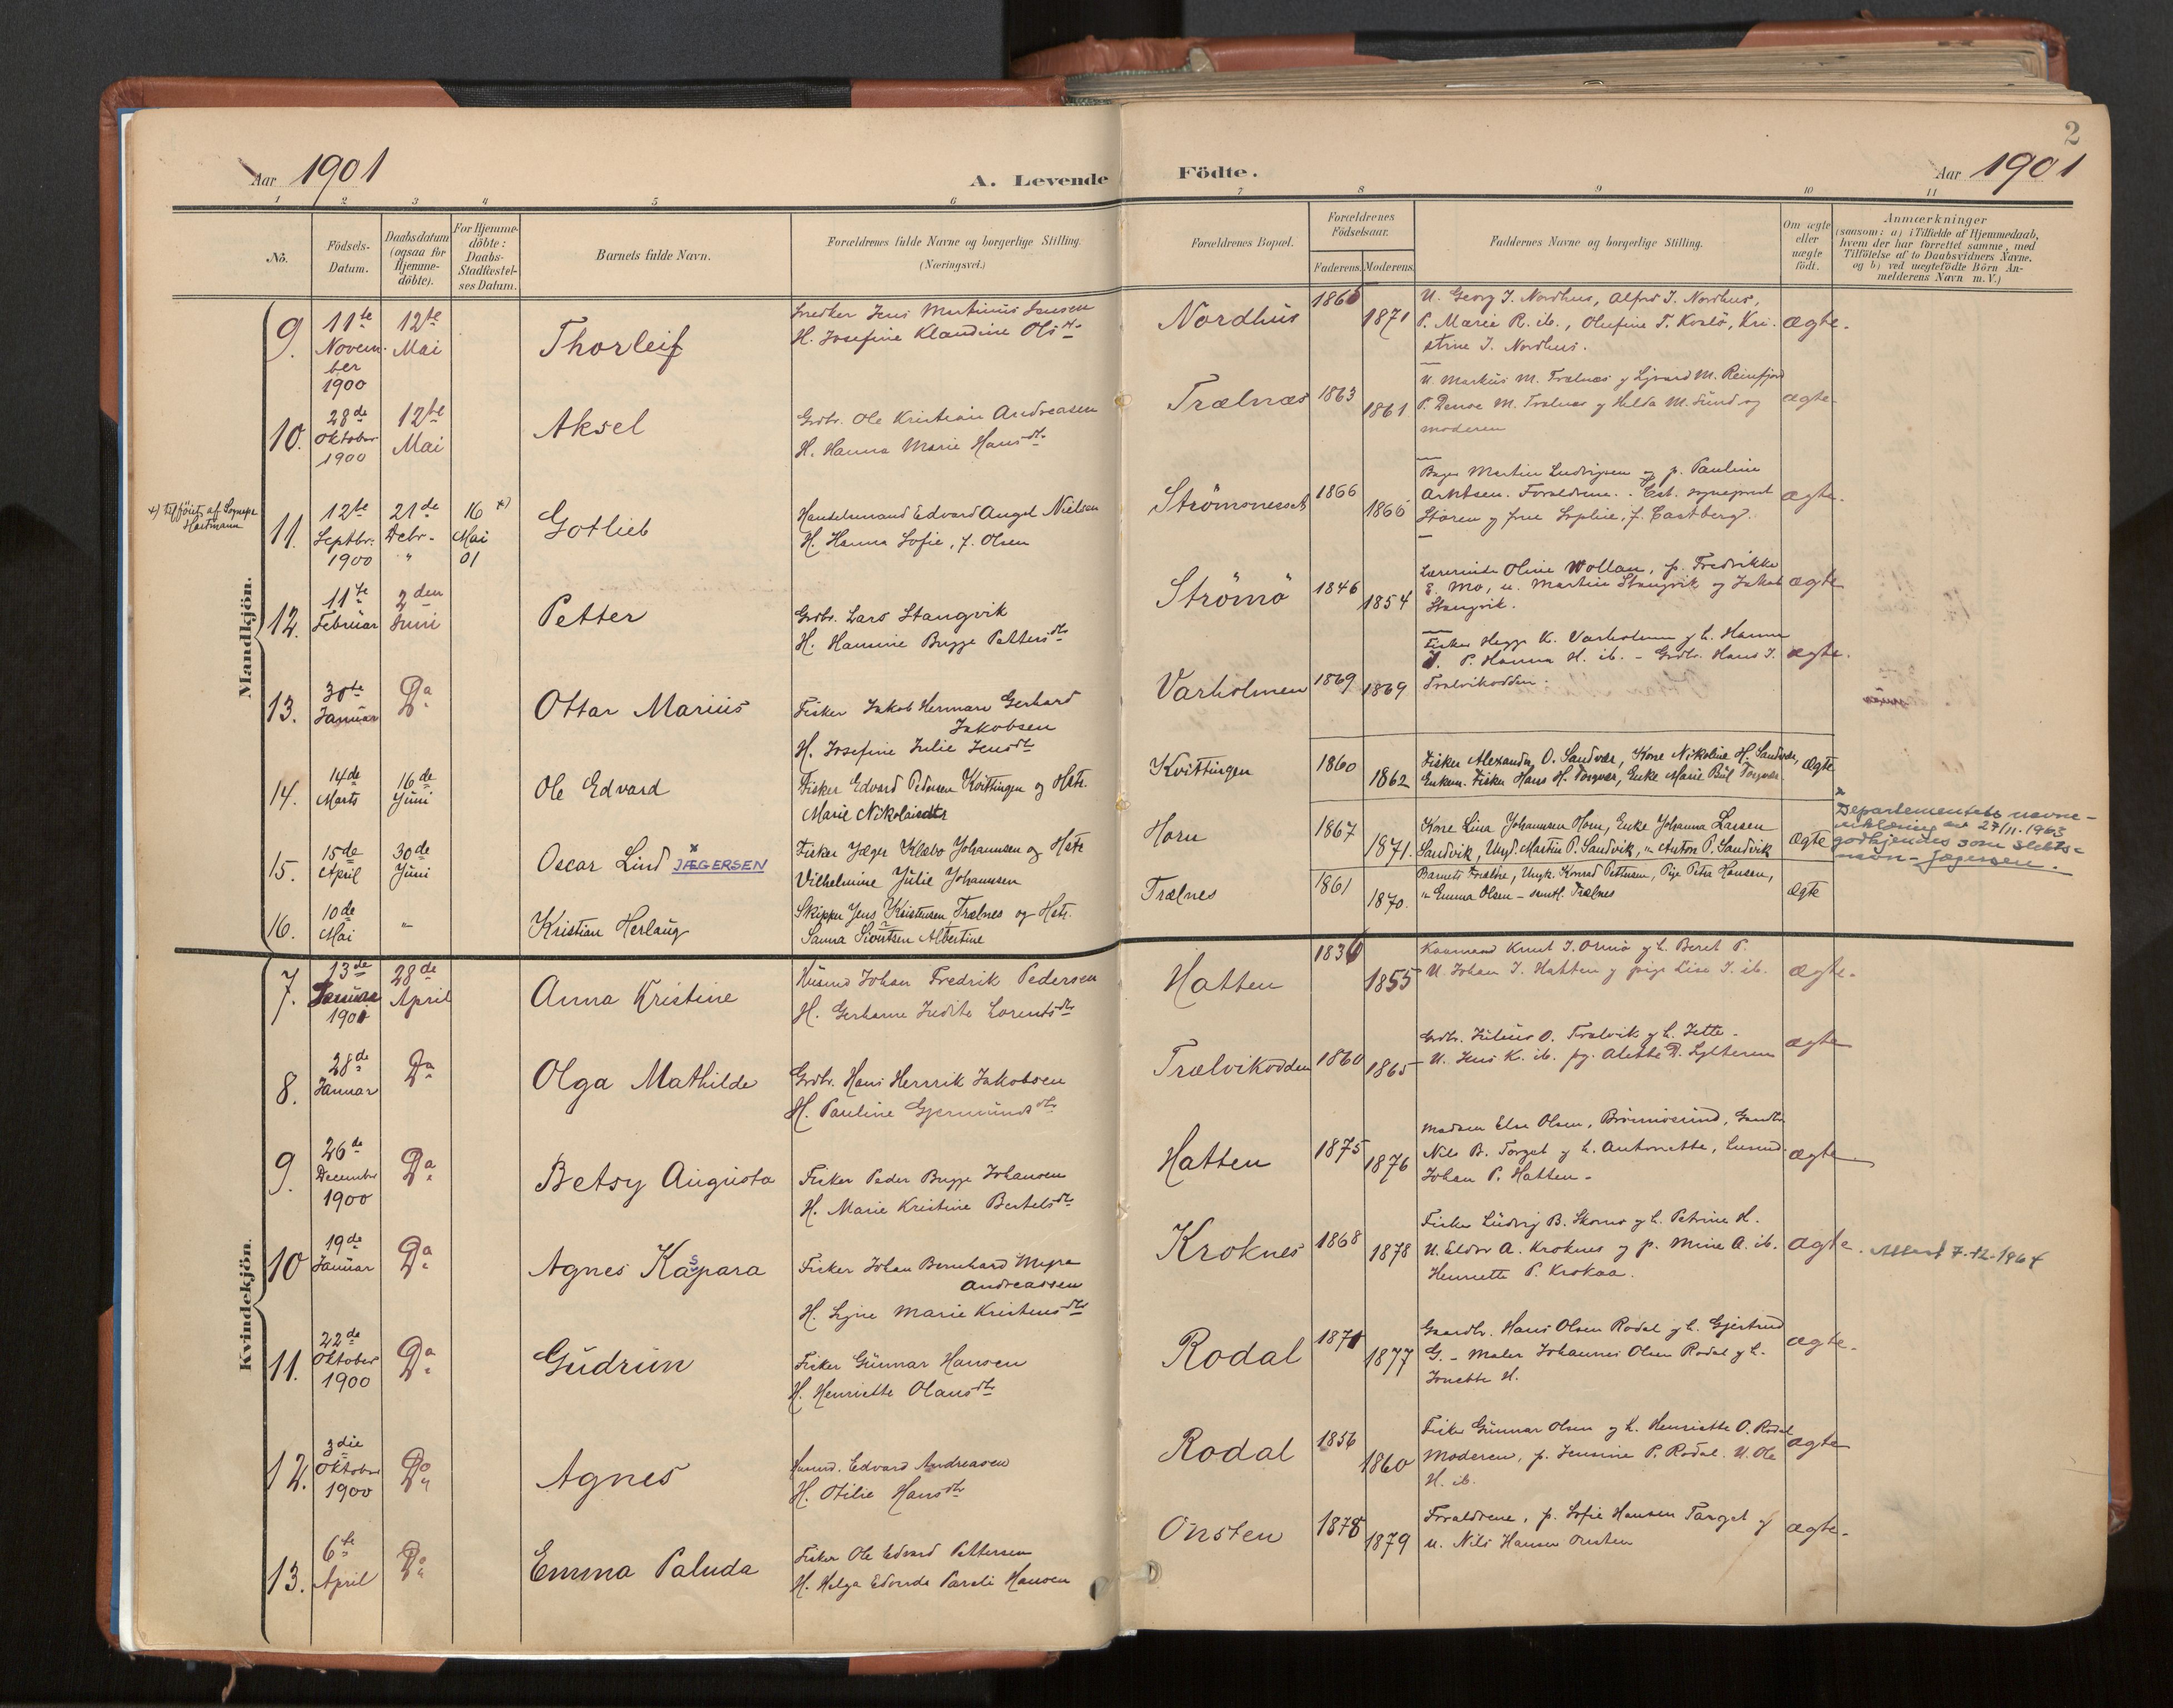 Aar 1901
A. Levende Födte.
Aar 1901
2
1 2 3 4 5 6 7 8 9 10 11
No.
Födsels-Datum.
Daabsdatum (ogsaa for Hjemme-döbte).
For Hjemme-döbte: Daabs-Stadfæstel-ses Datum.
Barnets fulde Navn.
Forældrenes fulde Navne og borgerlige Stilling. (Næringsvei.)
Forældrenes Bopæl.
Forældrenes Födselsaar.
Faderens. Moderens.
Faddernes Navne og borgerlige Stilling.
Om ægte eller uægte födt.
Anmærkninger
(saasom: a) i Tilfælde af Hjemmedaab, hvem der har forrettet samme, med Tilföielse af to Daabsvidners Navne, og b) ved uægtefödte Börn An-melderens Navn m. V.)
Mandkjön.
9. 11te November 1900 12te Mai Thorleif
Snedker Jens Martinus Jensen
H. Josefine Klaudine Olsdtr
Nordhus 1865 1871
U. Georg J. Nordhus, Alfred J. Nordhus,
P. Marie R. ib., Olufine T. Kvalö, Kri-
stine J. Nordhus.
ægte.
10. 28de Oktober 1900 12te Mai Aksel
Grdbr. Ole Kristian Andreasen
H. Hanna Marie Hansdtr
Trælnæs 1863 1861
U. Markus M. Trælnæs g M. Reinfjord
P. M. Trælnæs g Hilda M. Sund og
moderen
ægte
x) tilföiet af Sognepr. Hartmann
11. 12te Septbr. 1900 21de Decbr. " 16 x) Mai 01 Gotlieb
Handelsmand Edvard Angel Nielsen
H. Hanna Sofie, f. Olsen
Strömsnesset 1866 1866
Martin Ludvigsen og p. Pauline
Arntsen. Forældrene.
Stören g frue Sophie, f. Castberg.
ægte.
12. 11te Februar 2den Juni Petter
Grdbr. Lars Stangvik
H. Hansine Bugge Pettersdtr
Strömö 1846 1854
Lærerinde Oline Wollan, p. Fredrikke
E. Mo, u. Martin Stangvik g Jakob
Stangvik.
ægte
13. 30te Januar Do Ottar Marius
Fisker Jakob Herman Gerhard
Jakobsen
H. Josefine Julie Jensdtr
Varholmen 1869 1869
Fisker Hegge K. Varholmen g h. Hanna
J. P. Hanna H. ib. - Grdbr. Hans J.
Trælvikodden.
ægte.
14. 14de Marts 16de Juni Ole Edvard
Fisker Edvard Pedersen Kvittingen og Hstr.
Marie Nikolaisdtr
Kvittingen 1860 1862
Fisker Alexander O. Sandvær, Kone Nikoline H. Sandvær,
Enkem. Fisker Hans H. Torgvær, Enke Marie Bül Torgvær
Ægte
15. 15de April 30de Juni Oscar Lind x JÆGERSEN
Fisker Jæger Klæbo Johannsen og Hstr
Vilhelmine Julie Johannsen
Horn 1867 1871.
Kone Lina Johannsen Horn, Enke Johanna Larsen
Sandvik, Ungk. Martin P. Sandvik, " Anton P. Sandvik
Ægte
x
Departementets navne-
erklæring av 27/11.1963
godkjendes som slekts-
navn - Jægersen.
16. 10de Mai " Kristian Herlaug
Skipper Jens Kristensen, Trælnes og Hstr.
Sanna Sivertsen Albertine
Trælnes 1861 1870.
Barnets Forældre, Ungk. Konrad Pettersen, Pige Petra Hansen,
" Emma Olsen - samtl. Trælnes
Ægte
Kvindekjön.
7. 13de Januar 1901 28de April Anna Kristine
Husmd Johan Fredrik Pedersen
H. Gerharne Judite Lorentsdtr
Hatten 1836 1855
Kaarmand Knut J. Omnö g h. Beret P.
U. Johan J. Hatten g pige Lise J. ib.
ægte.
8. 28de Januar Do Olga Mathilde
Grdbr. Hans Henrik Jakobsen
H. Pauline Gjermundsdtr
Trælvikodden 1860 1865
Grdbr. Julius O. Trælvik g h. Jette -
U. Jens K. ib. pg. Alette D.
ægte
9. 26de December 1900 Do Betsy Augusta
Fisker Peder Bugge Johansen
H. Marie Kristine Bertelsdtr
Hatten 1875 1876
Madam Elen Olsen, Brönnösund, Gaardbr.
Nils B. Torget g h. Antonette, Husmd
Johan P. Hatten.
ægte
10 19de Januar Do Agnes Kaspara
Fisker Johan Bernhard Meyer
Andreassen
H. Signe Marie Kristensdtr
Kroknes 1868 1878
Fisker Ludvig B. Skomo g h. Petrine H.
U. Eldor A. Kroknes g p. Mine A. ib.
Henriette P. Krokaa.
ægte. Attest 7.12.1964
11. 22de Oktober 1900 Do Gudrun
Fisker Gunnar Hansen
H. Henriette Olausdtr
Rodal 1871 1877
Gaardbr. Hans Olsen Rodal g h. Gjertrud
G. - Maler Johannes Olsen Rodal g h.
Jonette H.
ægte.
12. 3die Oktober 1900 Do Agnes
Husmd. Edvard Andreasen
H. Otilie Hansdtr
Rodal 1856 1860
Fisker Gunnar Olsen g h. Henriette O. Rodal
Moderen, p. Jensine P. Rodal. U. Ole
H. ib.
ægte
13. 6te April Do Emma Paluda
Fisker Ole Edvard Pettersen
H. Helga Edvarda Pareli Hansen
Onsten 1878 1879
Forældrene, p. Sofie Hansen Torget g
u. Nils Hansen Onsten
ægte.